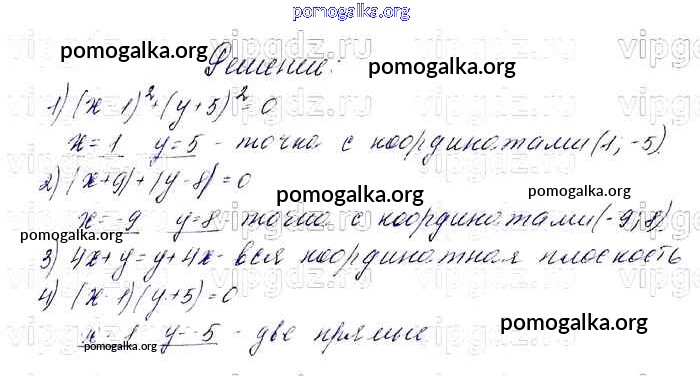 pomogalka.org
Решение:
pomogalka.org pomogalka.org
1) (x-1)²+(y+5)²=0
x=1 y=5 - точка с координатами (1; -5)
2) |x+9|+|y-8|=0
pomogalka.org
x=-9 y=8 - точка с координатами (-9; 8)
pomogalka.org
3) 4x+y=y+4x - вся координатная плоскость
4) (x-1)(y+5)=0
x=1 y=-5 - две прямые
pomogalka.org
pomogalka.org
vipgdz.ru